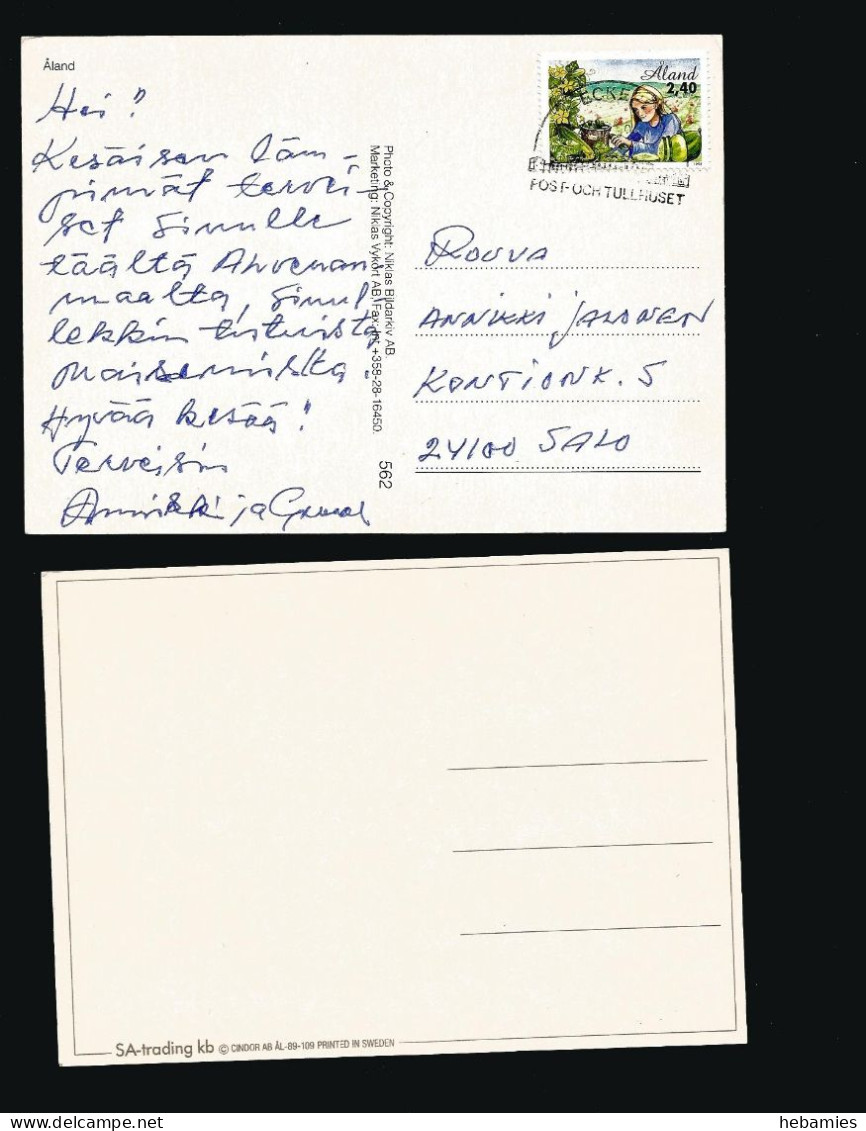 Åland
Hei!
Kesäisen läm-
pimät tervei-
set Sinulle
täältä Ahvenan
maalta, Sinul-
lekkin tutuista
maisemista.
Hyvää kesää!
Terveisin
ja
Photo & Copyright: Niklas Bildarkiv AB.
Marketing: Niklas Vykort AB, Fax-int +358-28-16450.
562
Åland
2,40
ECKE
POST- OCH TULLHUSET
ROUVA
ANNIKKI JALONEN
KONTIONK. 5
24100 SALO
SA-trading kb © CINDOR AB ÅL-89-109 PRINTED IN SWEDEN
hebamies